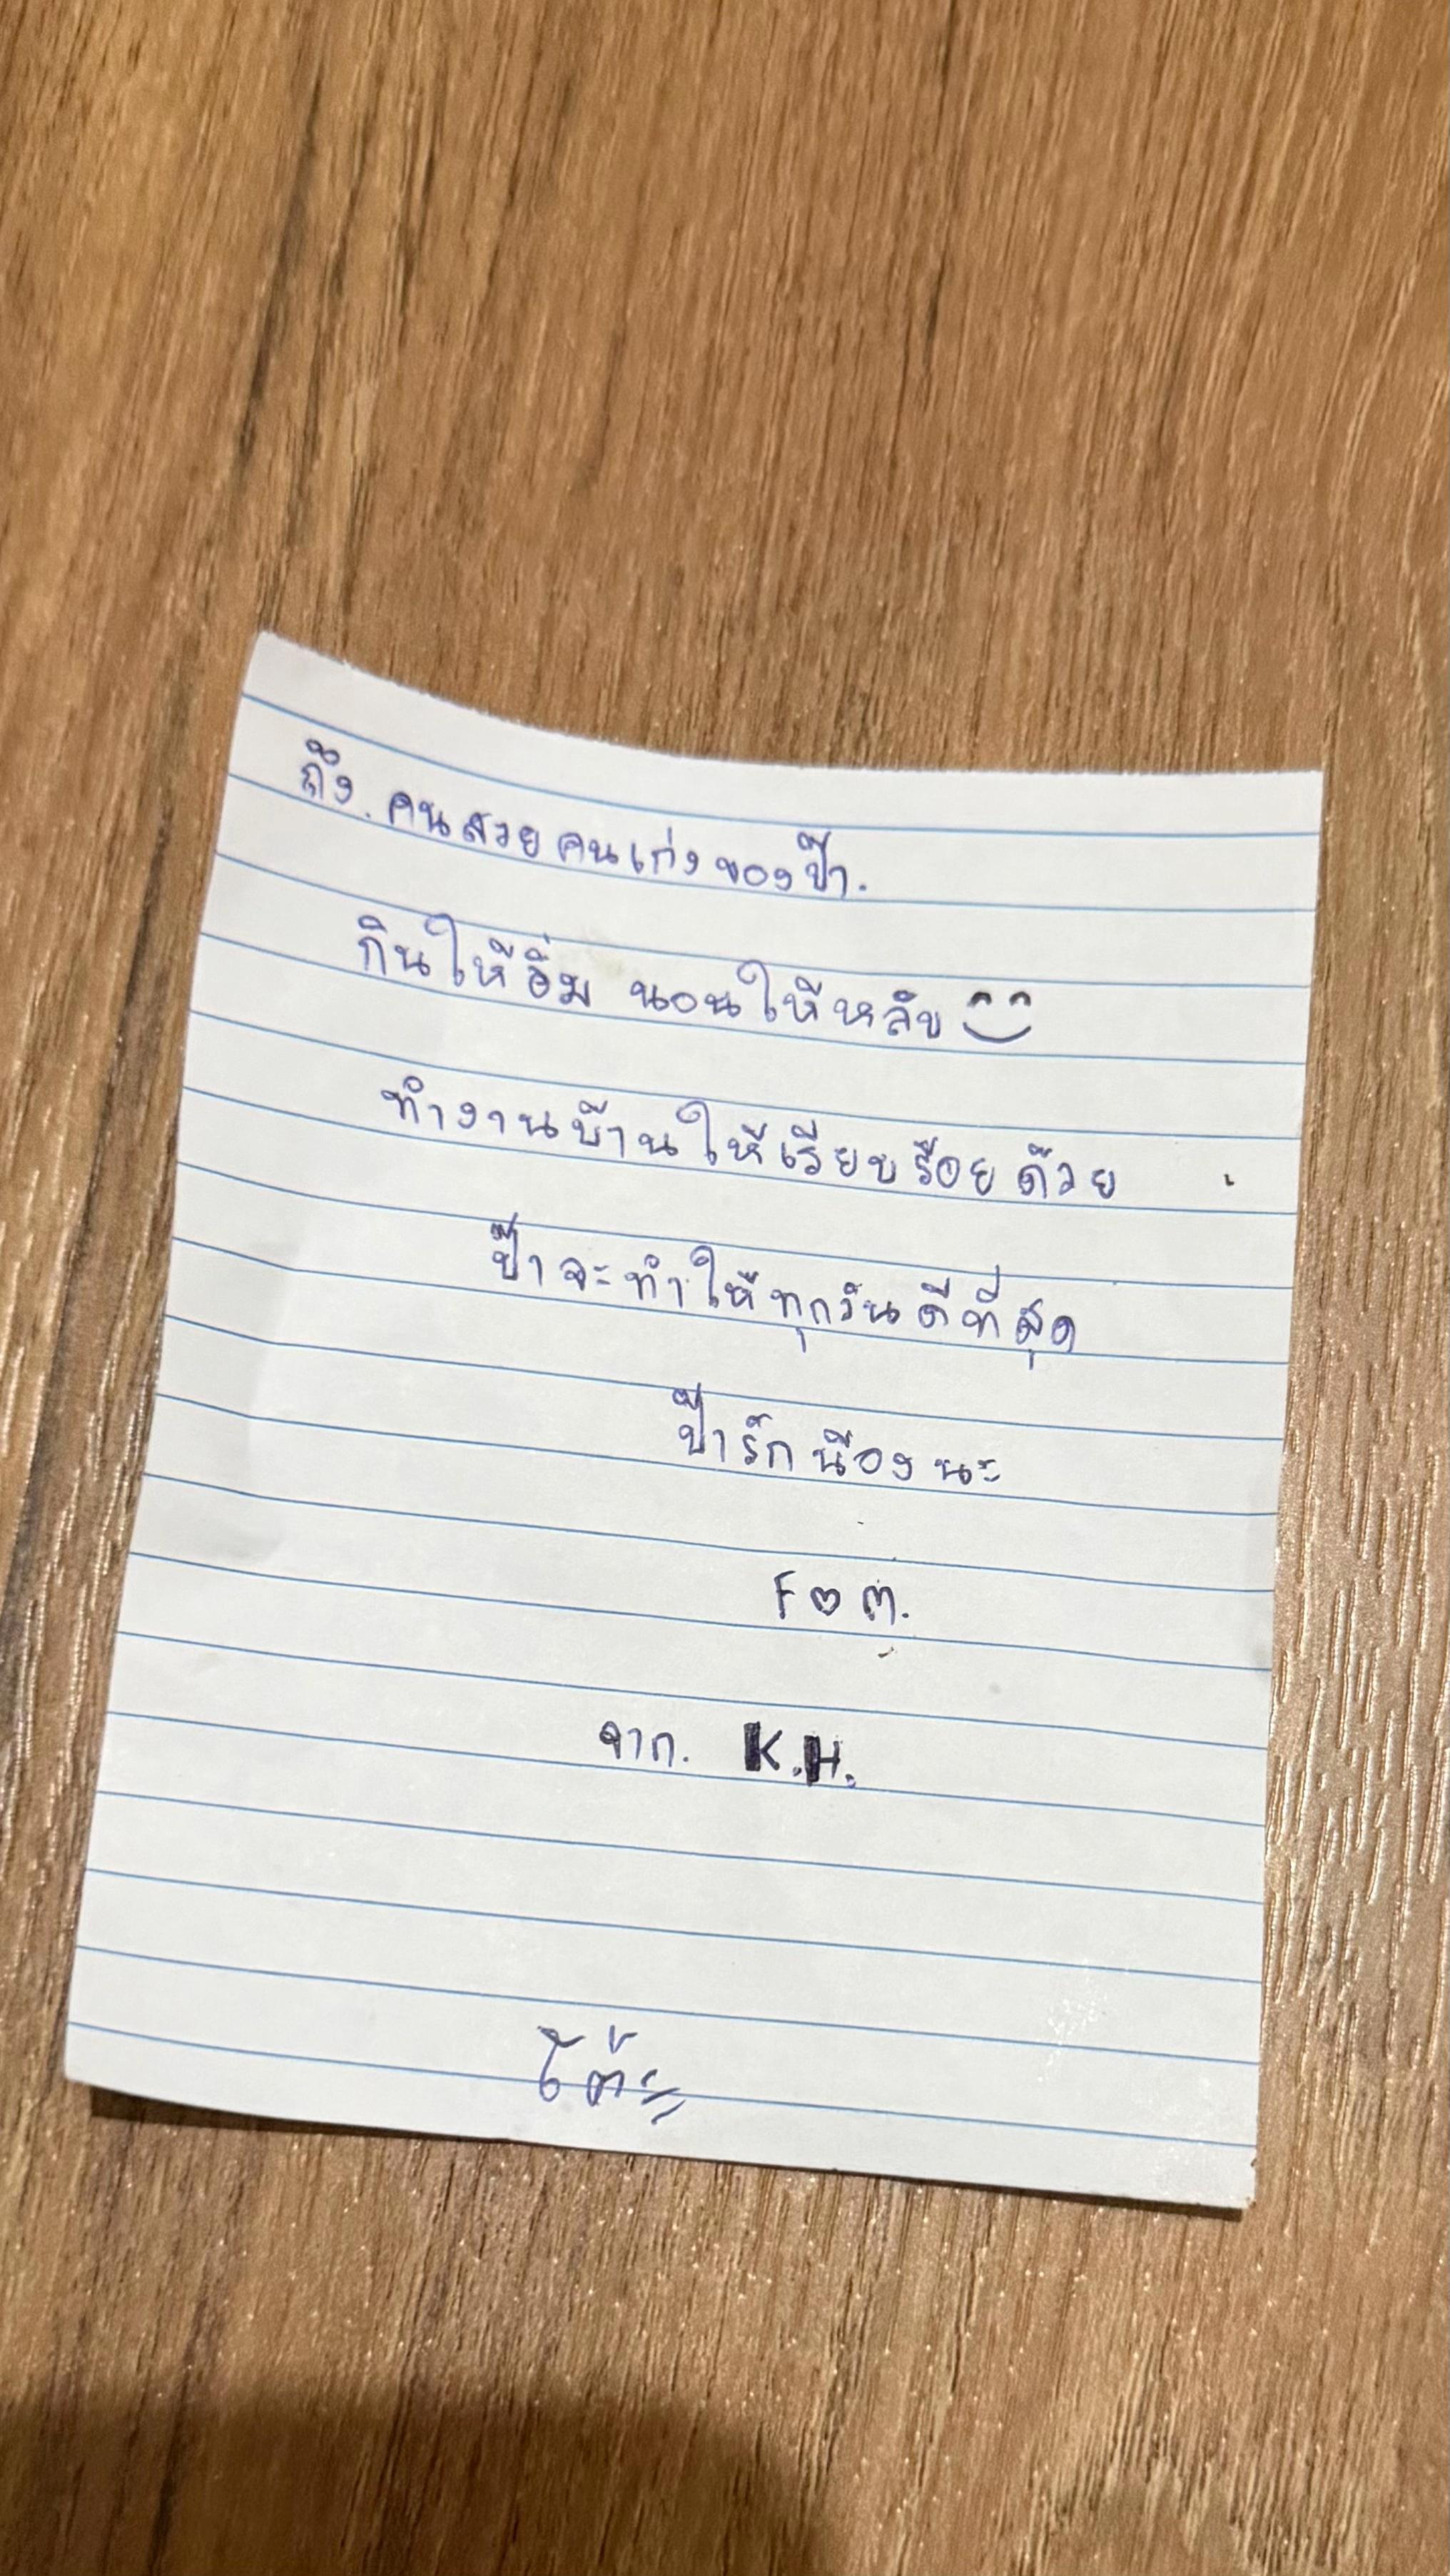 ถึง. คนสวยคนเก่งของป๊า.
กินให้อิ่ม นอนให้หลับ
ทำงานบ้านให้เรียบร้อยด้วย
ป๊าจะทำให้ทุกวันดีที่สุด
ป๊ารักน้องนะ
F♡M.
จาก. K.H.